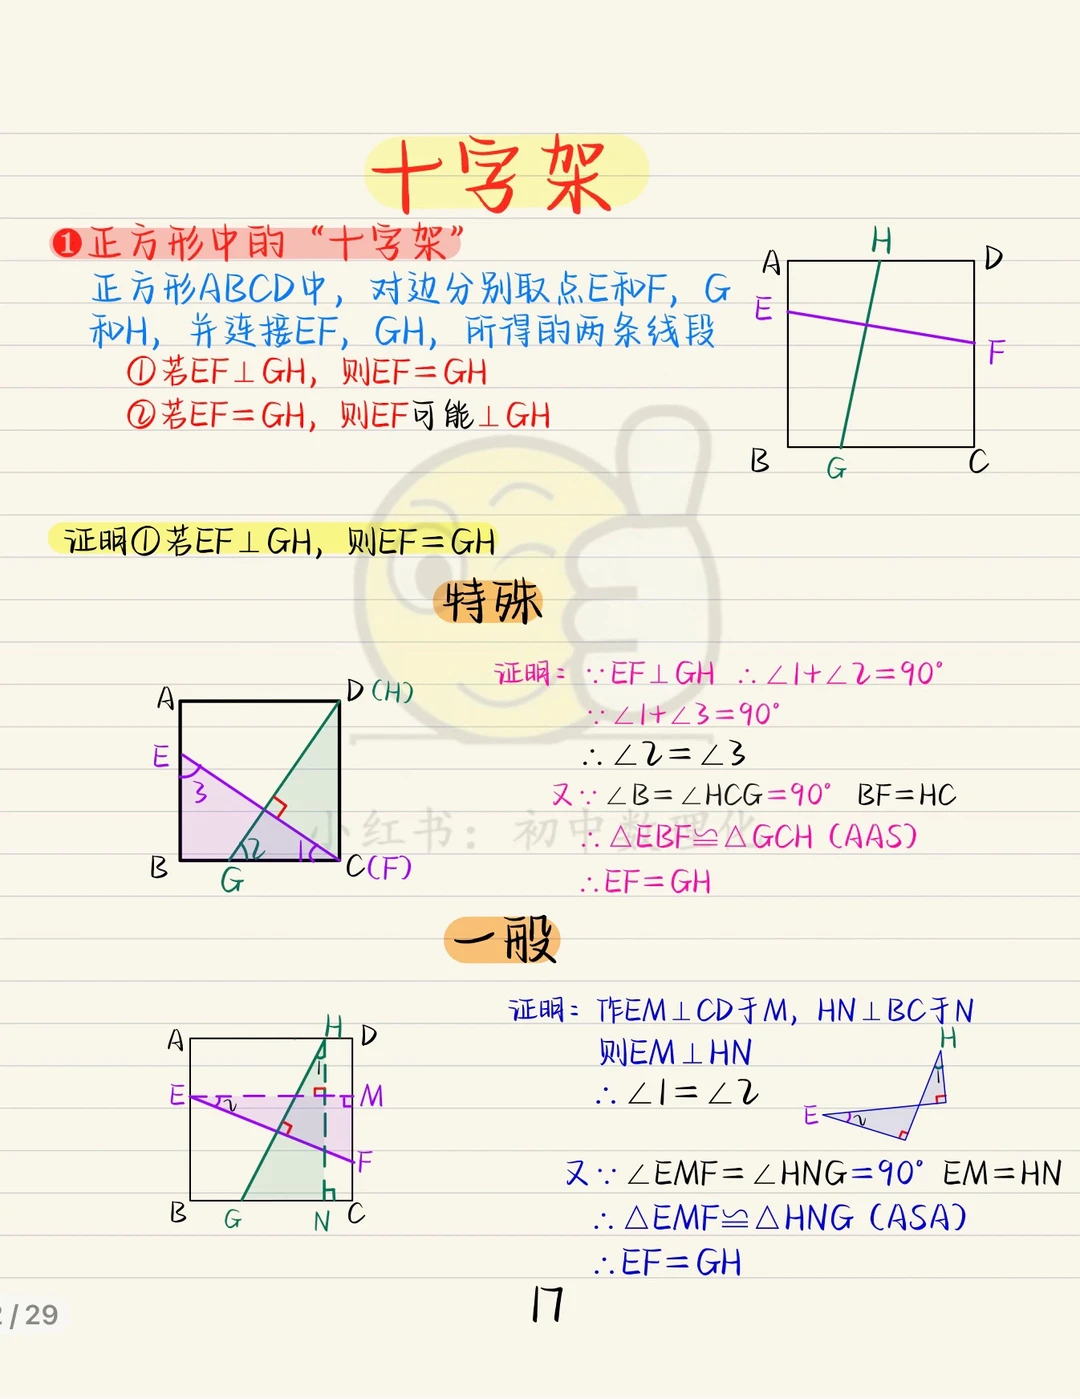 十字架
❶正方形中的“十字架”
正方形ABCD中，对边分别取点E和F，G
和H，并连接EF，GH，所得的两条线段
①若EF⊥GH，则EF＝GH
②若EF＝GH，则EF可能⊥GH
A
H
D
E
F
B
G
C
证明①若EF⊥GH，则EF＝GH
特殊
证明：∵EF⊥GH ∴∠1+∠2＝90°
∵∠1+∠3＝90°
∴∠2＝∠3
又∵∠B＝∠HCG＝90° BF＝HC
∴△EBF≌△GCH（AAS）
∴EF＝GH
A
D(H)
E
3
2
1
B
G
C(F)
小红书：初中数理化
一般
证明：作EM⊥CD于M，HN⊥BC于N
则EM⊥HN
∴∠1＝∠2
又∵∠EMF＝∠HNG＝90° EM＝HN
∴△EMF≌△HNG（ASA）
∴EF＝GH
A
H
D
1
E
2
M
F
B
G
N
C
H
1
E
2
17
2/29